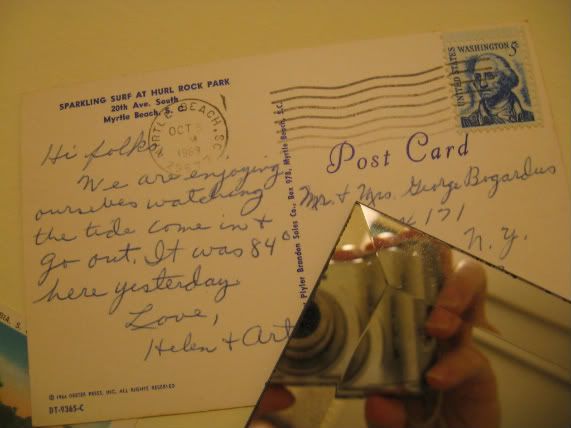 SPARKLING SURF AT HURL ROCK PARK
20th Ave. South
Myrtle Beach, S.C.
MYRTLE BEACH, S.C.
OCT
1969
Hi folks,
We are enjoying
ourselves watching
the tide come in &
go out. It was 84°
here yesterday
Love,
Helen & Art
© 1966 DEXTER PRESS, INC. ALL RIGHTS RESERVED
DT-9365-C
Plyler Brandon Sales Co., Box 978, Myrtle Beach, S.C.
UNITED STATES
WASHINGTON 5c
Post Card
Mr. & Mrs. George Bogardus
171
N.Y.